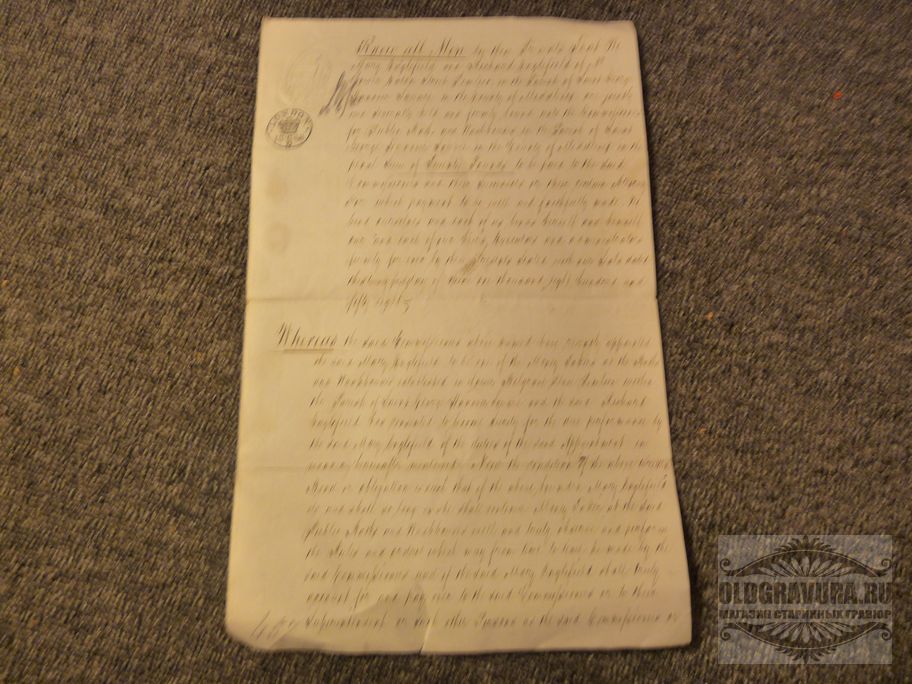 Know all Men by these Presents that We
Mary Inglefield and Richard Inglefield of
in the Parish of Saint George
Hanover Square in the County of Middlesex are jointly
and severally held and firmly bound unto the Commissioners
for Public Baths and Washhouses in the Parish of Saint
George Hanover Square in the County of Middlesex in the
penal Sum of Twenty Pounds to be paid to the said
Commissioners and their
For which payment to be well and faithfully made We
bind ourselves and each of us
and each of our Heirs Executors and administrators
firmly by these Presents Sealed with our Seals dated
day of one thousand eight hundred and
fifty eight
LONDON
Whereas the said Commissioners above named have appointed
the said Mary Inglefield to be one of the Money Takers at the Baths
and Washhouses established in within
the Parish of Saint George Hanover Square and the said Richard
Inglefield has to become Surety for the due performance by
the said Mary Inglefield of the duties of the said Appointment in
manner hereinafter mentioned Now the condition of the above
Bond or obligation is such that if the above bounden Mary Inglefield
do and shall so long as she shall continue Money Taker at the said
Public Baths and Washhouses well and truly observe and perform
the Rules and orders which may from time to time be made by the
said Commissioners and if the said Mary Inglefield shall duly
account for and pay over to the said Commissioners or to their
Superintendent or such other Person as the said Commissioners or
OLDGRAVURA.RU
МАГАЗИН СТАРИННЫХ ГРАВЮР